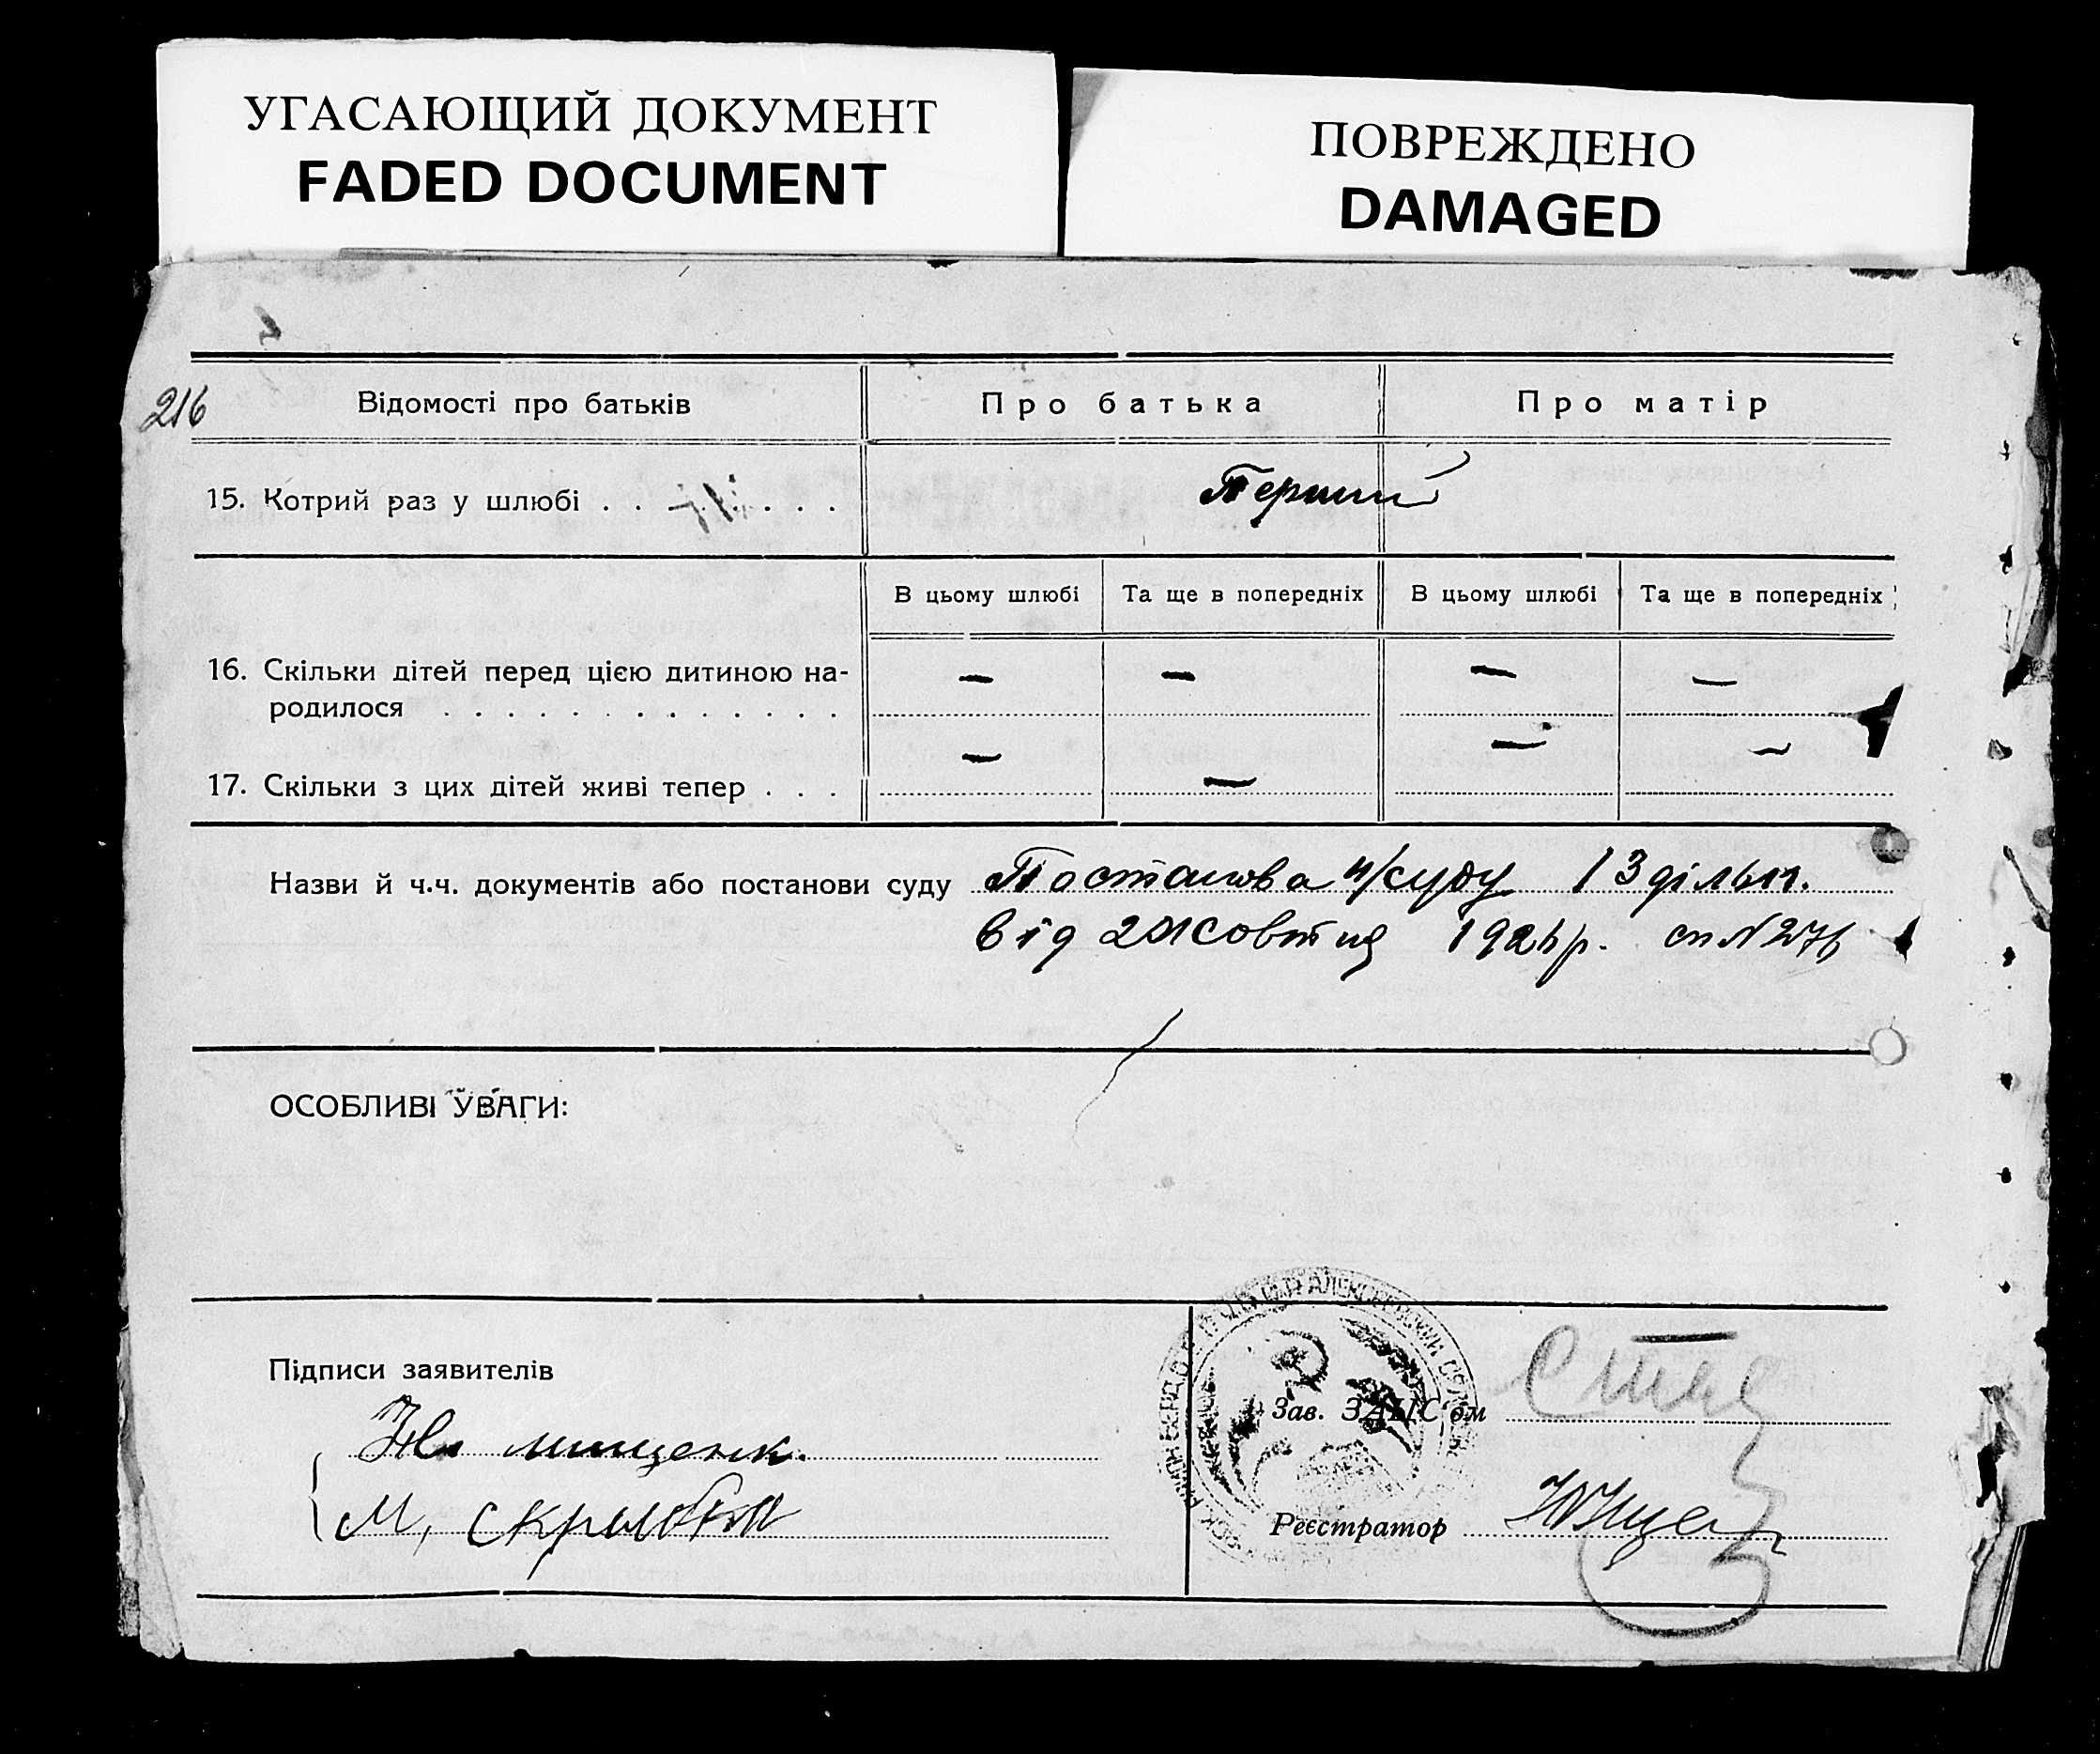 УГАСАЮЩИЙ ДОКУМЕНТ
FADED DOCUMENT
ПОВРЕЖДЕНО
DAMAGED
216
Відомості про батьків
Про батька
Про матір
15. Котрий раз у шлюбі . . . . . . . .
Перший
В цьому шлюбі
Та ще в попередніх
В цьому шлюбі
Та ще в попередніх
16. Скільки дітей перед цією дитиною на-
— — — —
родилося . . . . . . . . . . . . . .
17. Скільки з цих дітей живі тепер . . .
— — — —
Назви й ч.ч. документів або постанови суду Постанова н/суду 13 дільн.
від жовтня
ОСОБЛИВІ УВАГИ:
Підписи заявителів
Зав. ЗАГС'ом
мищенк.
М, скрыпка
Реєстратор